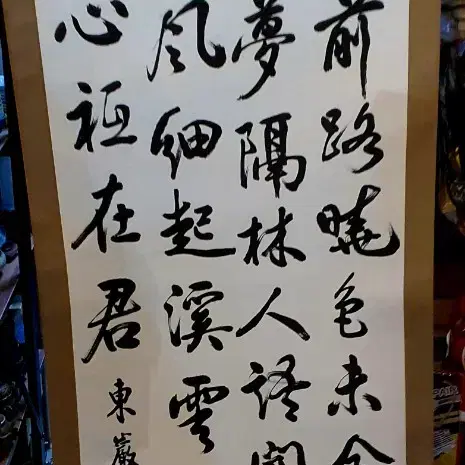 前路曉色未
夢隔林人語
風細起溪雲
心祗在君
東巖